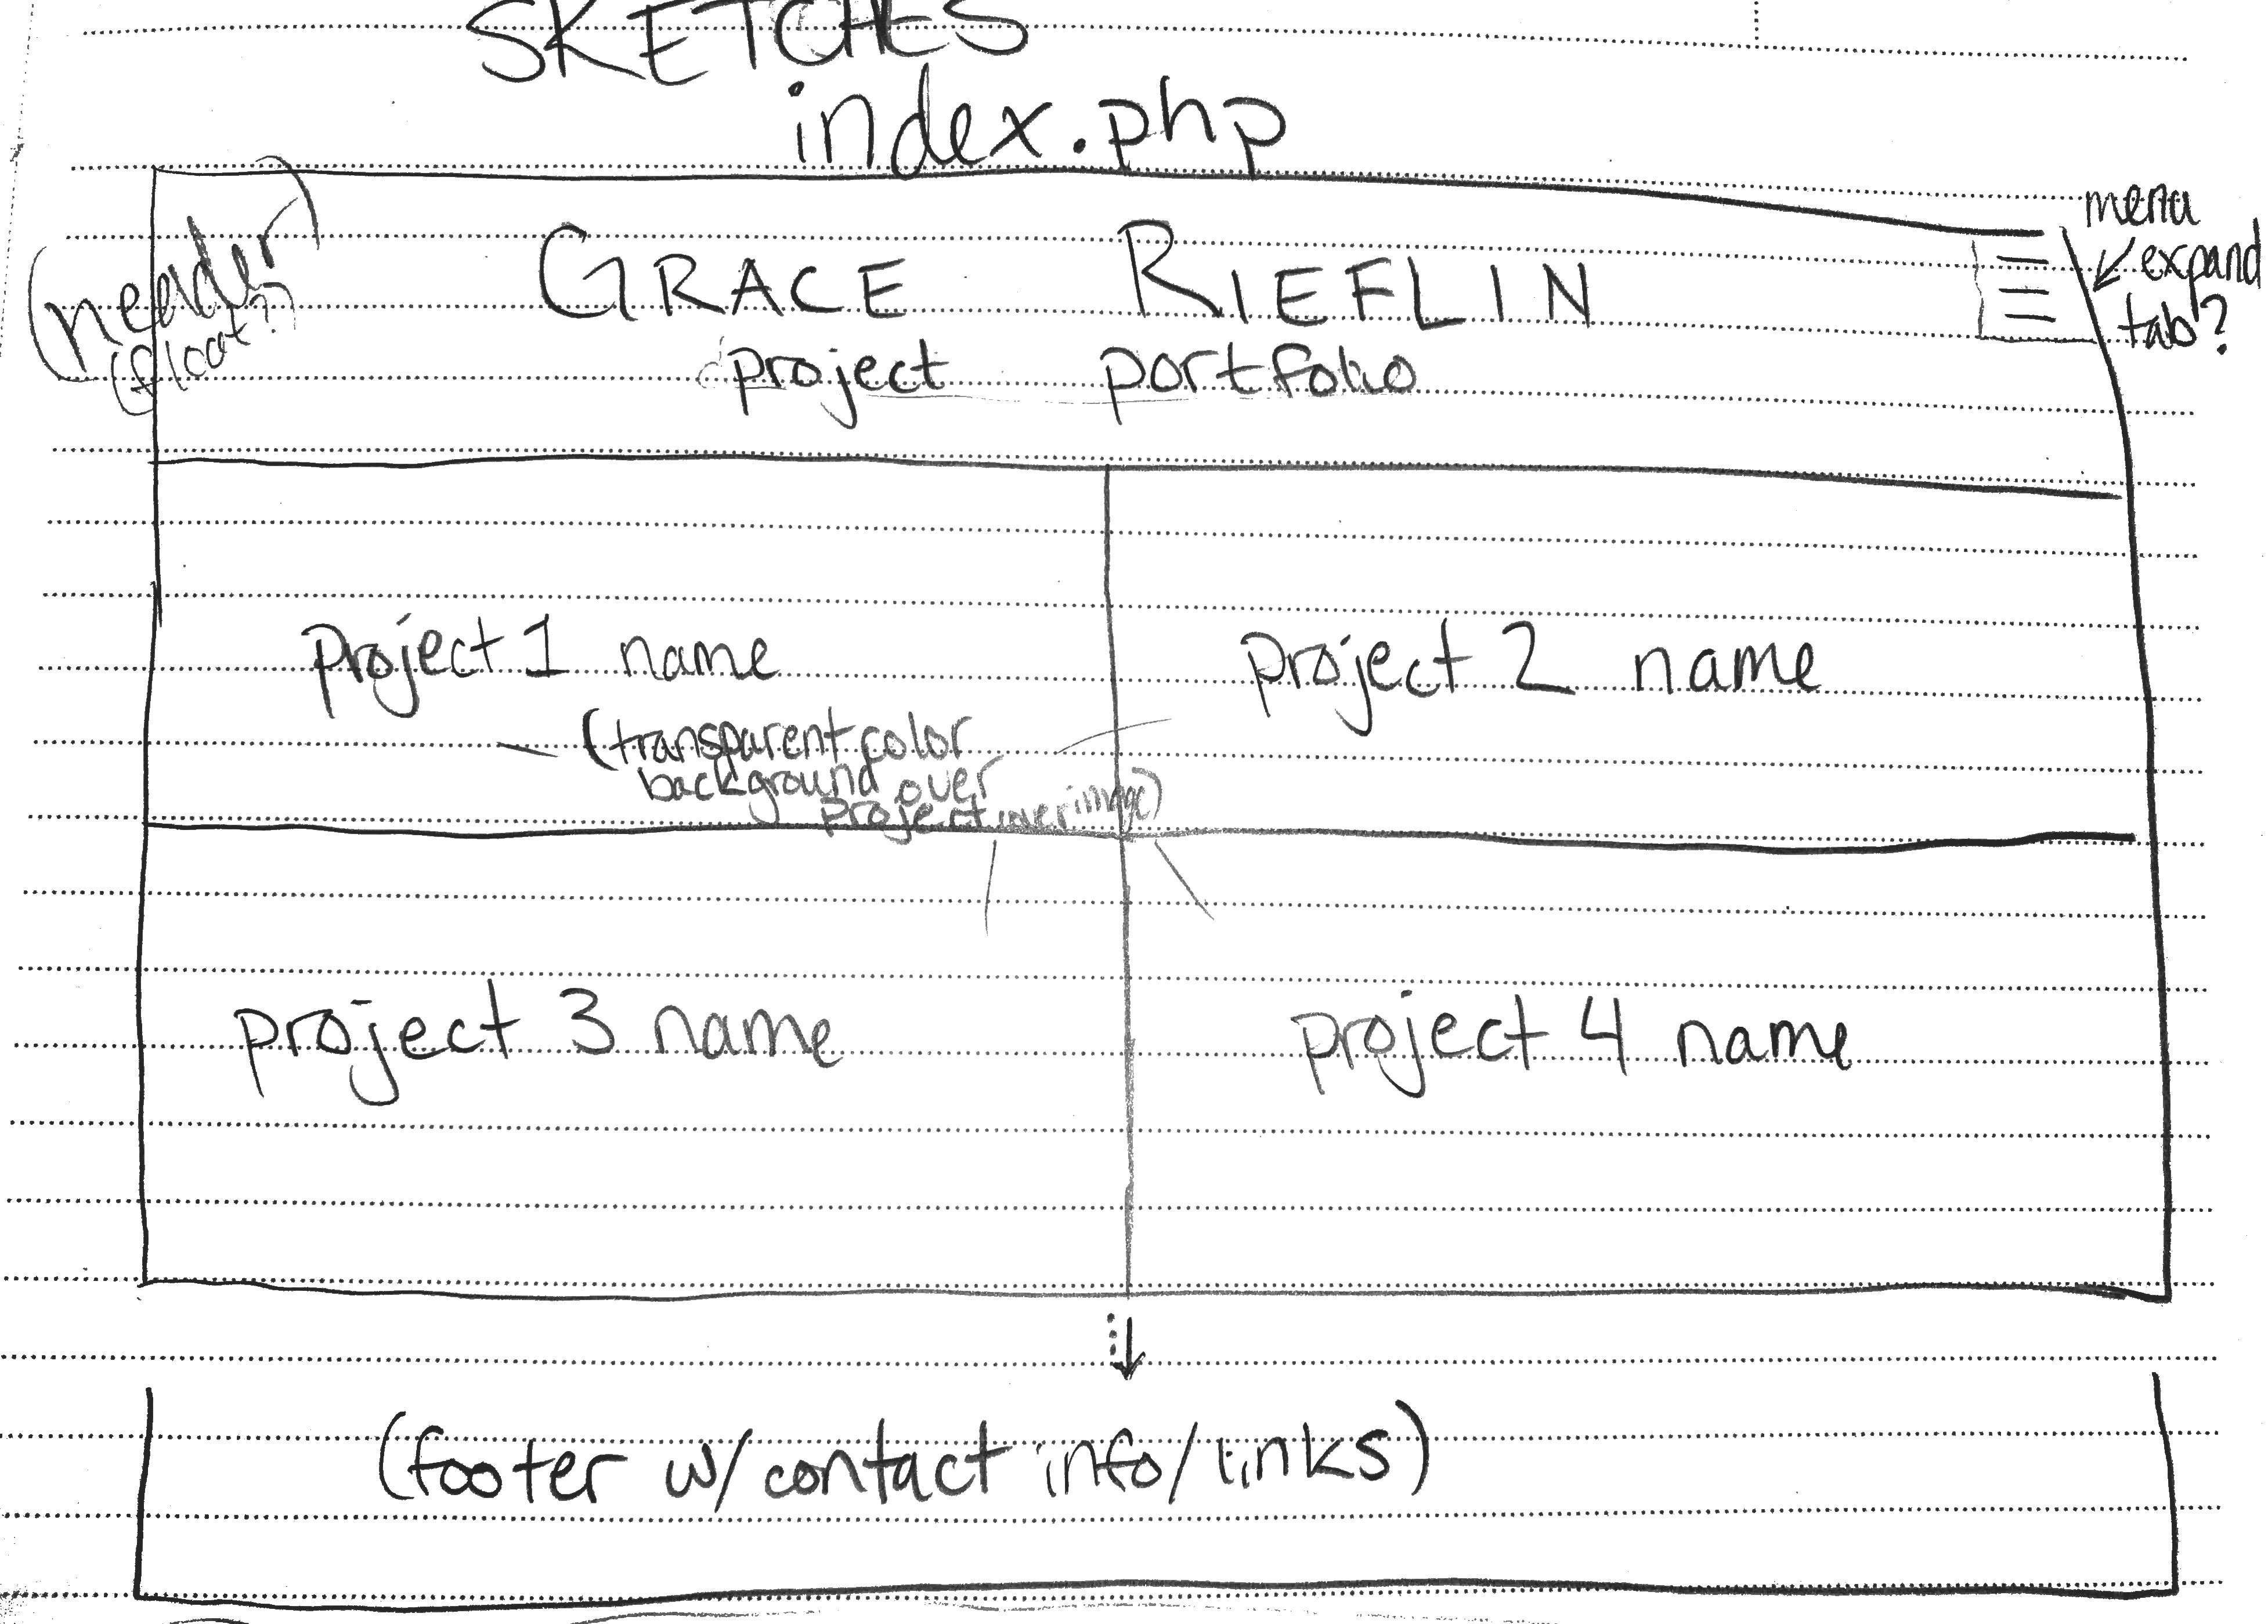 SKETCHES
index.php
(header)
(float?)
GRACE RIEFLIN
project portfolio
menu
expand
tab?
project 1 name
project 2 name
(transparent color
background over
project over image)
project 3 name
project 4 name
(footer w/ contact info/links)